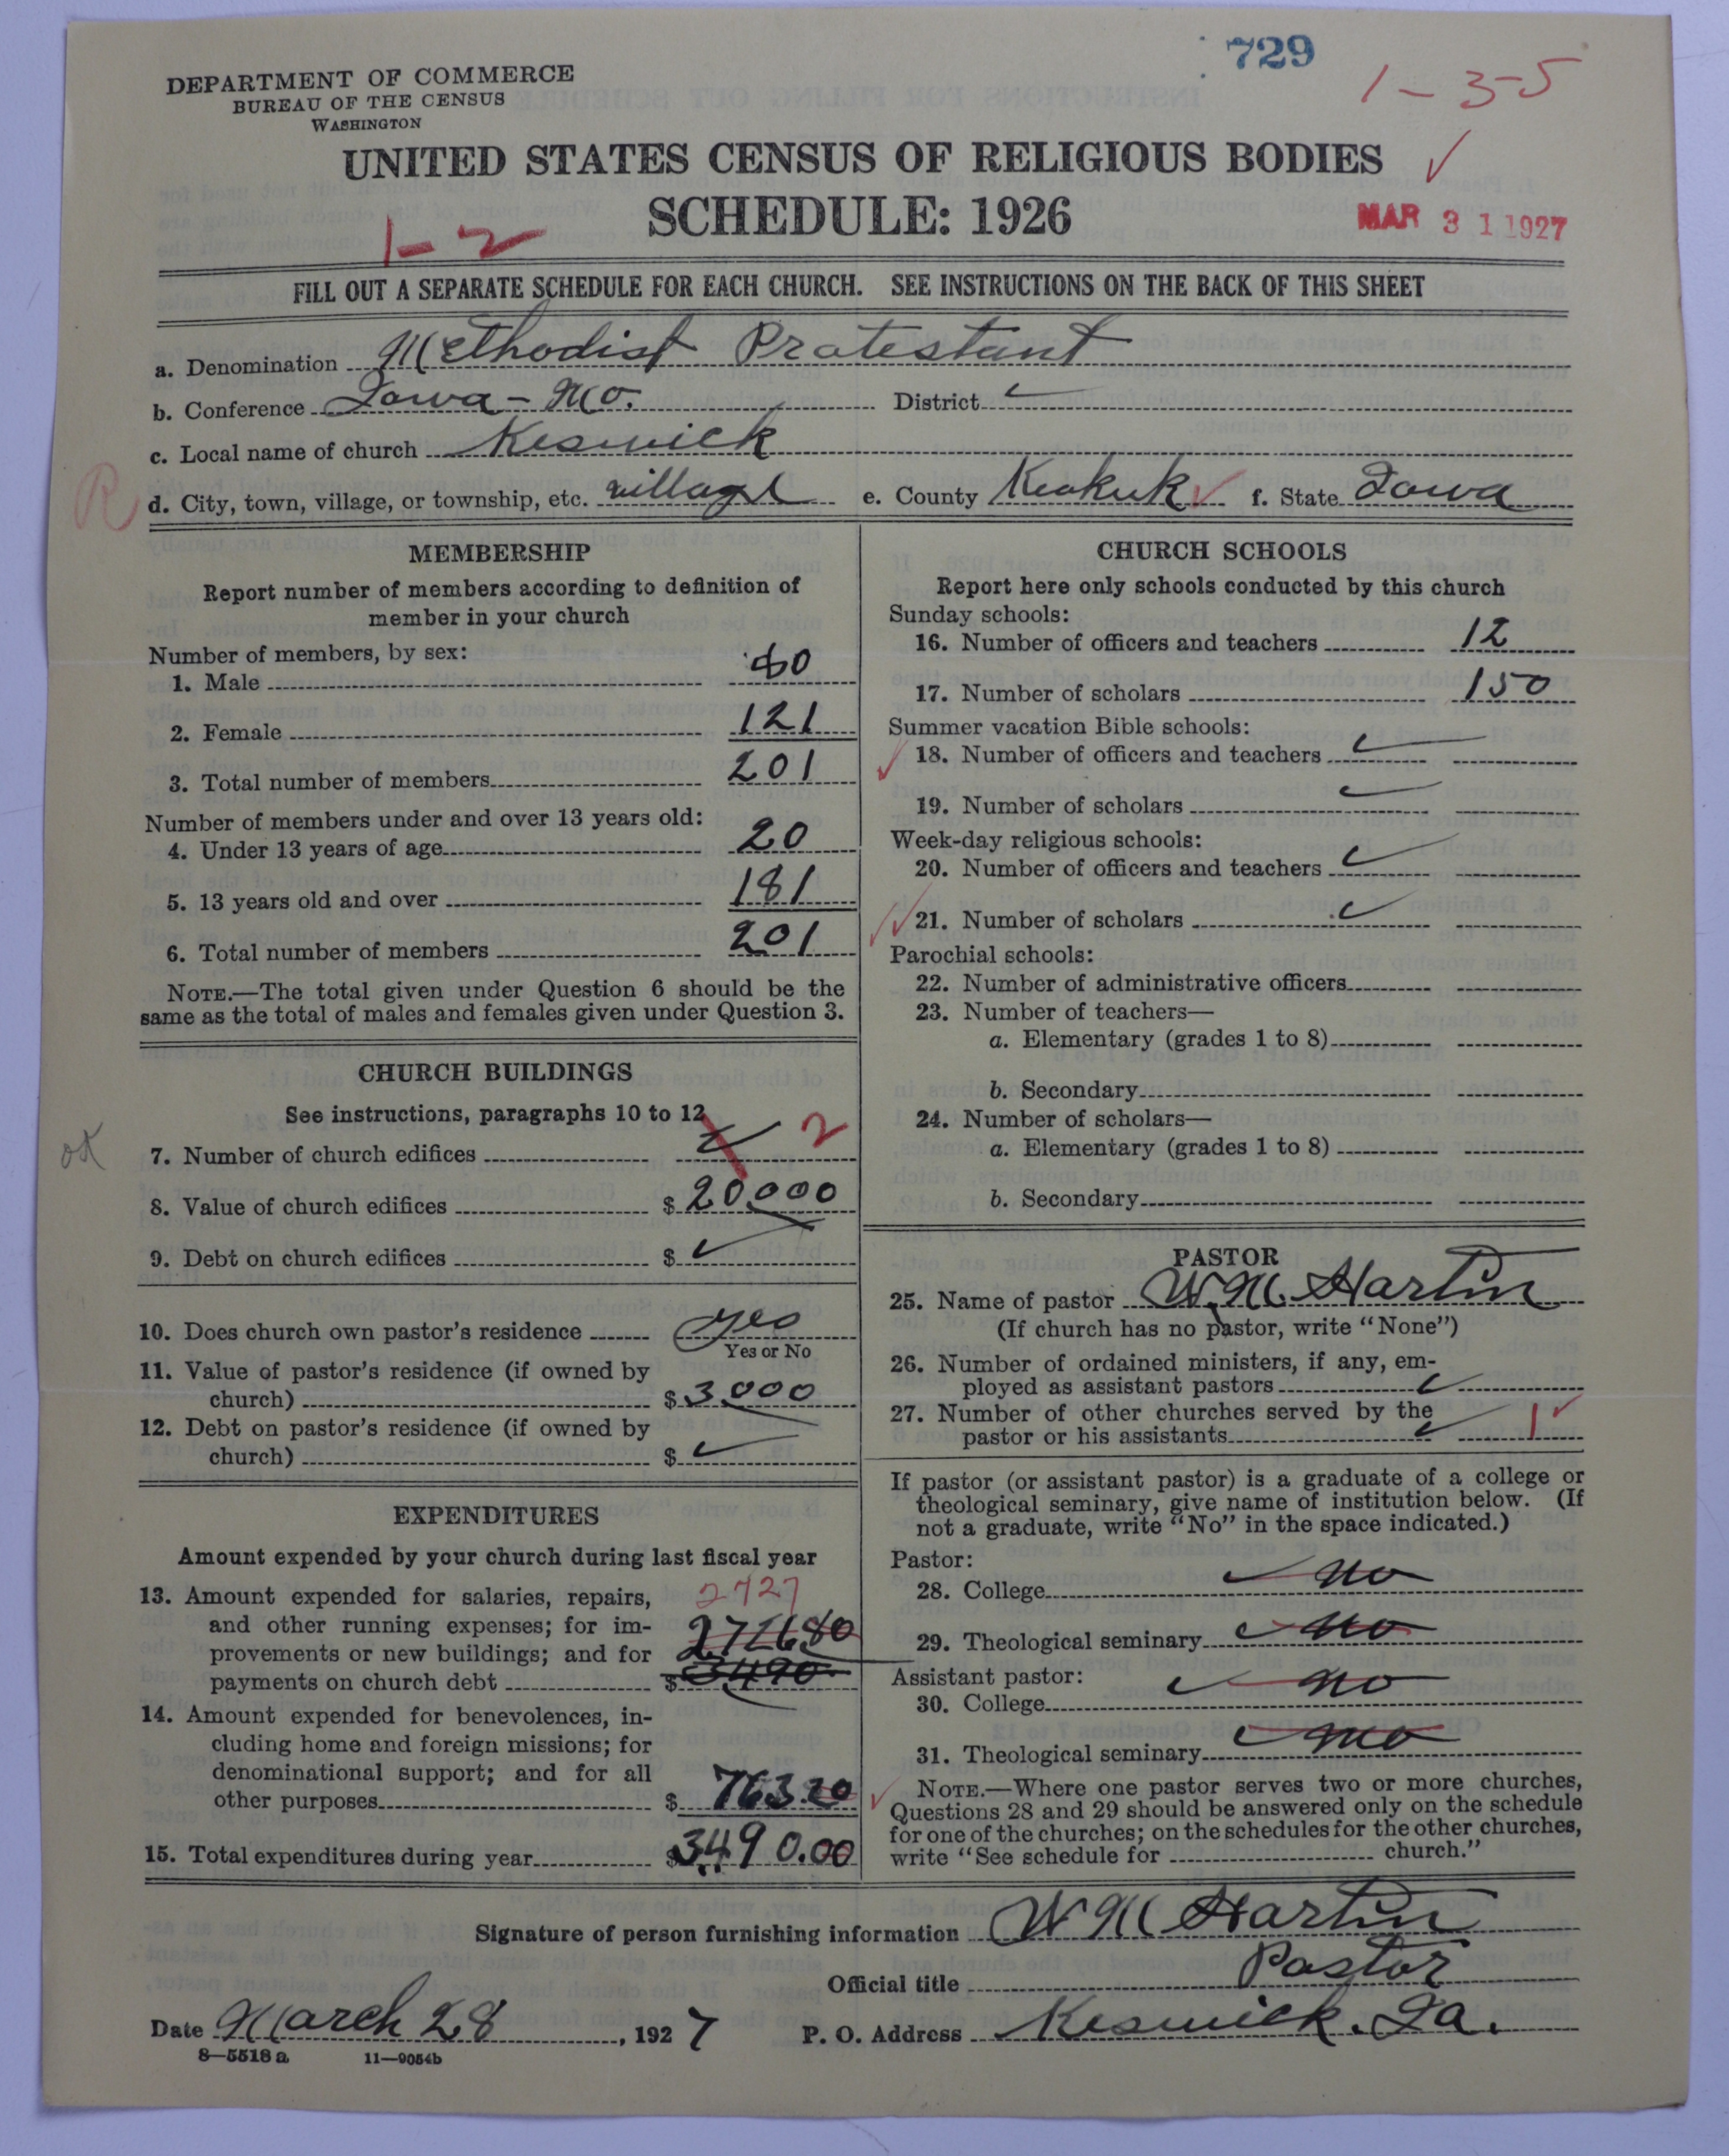 729
1-3-5
DEPARTMENT OF COMMERCE
BUREAU OF THE CENSUS
WASHINGTON
UNITED STATES CENSUS OF RELIGIOUS BODIES
SCHEDULE: 1926
1-2
MAR 31 1927
FILL OUT A SEPARATE SCHEDULE FOR EACH CHURCH. SEE INSTRUCTIONS ON THE BACK OF THIS SHEET
a. Denomination Methodist Protestant
b. Conference Iowa - Mo. District
c. Local name of church Keswick
R
d. City, town, village, or township, etc. village e. County Keokuk f. State Iowa
MEMBERSHIP
Report number of members according to definition of
member in your church
Number of members, by sex:
1. Male 80
2. Female 121
3. Total number of members 201
Number of members under and over 13 years old:
4. Under 13 years of age 20
5. 13 years old and over 181
6. Total number of members 201
NOTE.—The total given under Question 6 should be the
same as the total of males and females given under Question 3.
CHURCH BUILDINGS
See instructions, paragraphs 10 to 12
ok
7. Number of church edifices 1 2
8. Value of church edifices $ 20,000
9. Debt on church edifices $
10. Does church own pastor's residence yes
Yes or No
11. Value of pastor's residence (if owned by
church) $ 3,000
12. Debt on pastor's residence (if owned by
church) $
EXPENDITURES
Amount expended by your church during last fiscal year
13. Amount expended for salaries, repairs, 2727
and other running expenses; for im- 2726 80
provements or new buildings; and for
payments on church debt $ 3490
14. Amount expended for benevolences, in-
cluding home and foreign missions; for
denominational support; and for all
other purposes $ 763.20
15. Total expenditures during year $ 3490.00
CHURCH SCHOOLS
Report here only schools conducted by this church
Sunday schools:
16. Number of officers and teachers 12
17. Number of scholars 150
Summer vacation Bible schools:
18. Number of officers and teachers
19. Number of scholars
Week-day religious schools:
20. Number of officers and teachers
21. Number of scholars
Parochial schools:
22. Number of administrative officers
23. Number of teachers—
a. Elementary (grades 1 to 8)
b. Secondary
24. Number of scholars—
a. Elementary (grades 1 to 8)
b. Secondary
PASTOR
25. Name of pastor W. M. Hartin
(If church has no pastor, write "None")
26. Number of ordained ministers, if any, em-
ployed as assistant pastors
27. Number of other churches served by the
pastor or his assistants 1
If pastor (or assistant pastor) is a graduate of a college or
theological seminary, give name of institution below. (If
not a graduate, write "No" in the space indicated.)
Pastor:
28. College no
29. Theological seminary no
Assistant pastor:
30. College no
31. Theological seminary no
NOTE.—Where one pastor serves two or more churches,
Questions 28 and 29 should be answered only on the schedule
for one of the churches; on the schedules for the other churches,
write "See schedule for church."
Signature of person furnishing information W M Hartin
Official title Pastor
Date March 28, 1927 P. O. Address Keswick. Ia.
8—5518 a 11—9054b